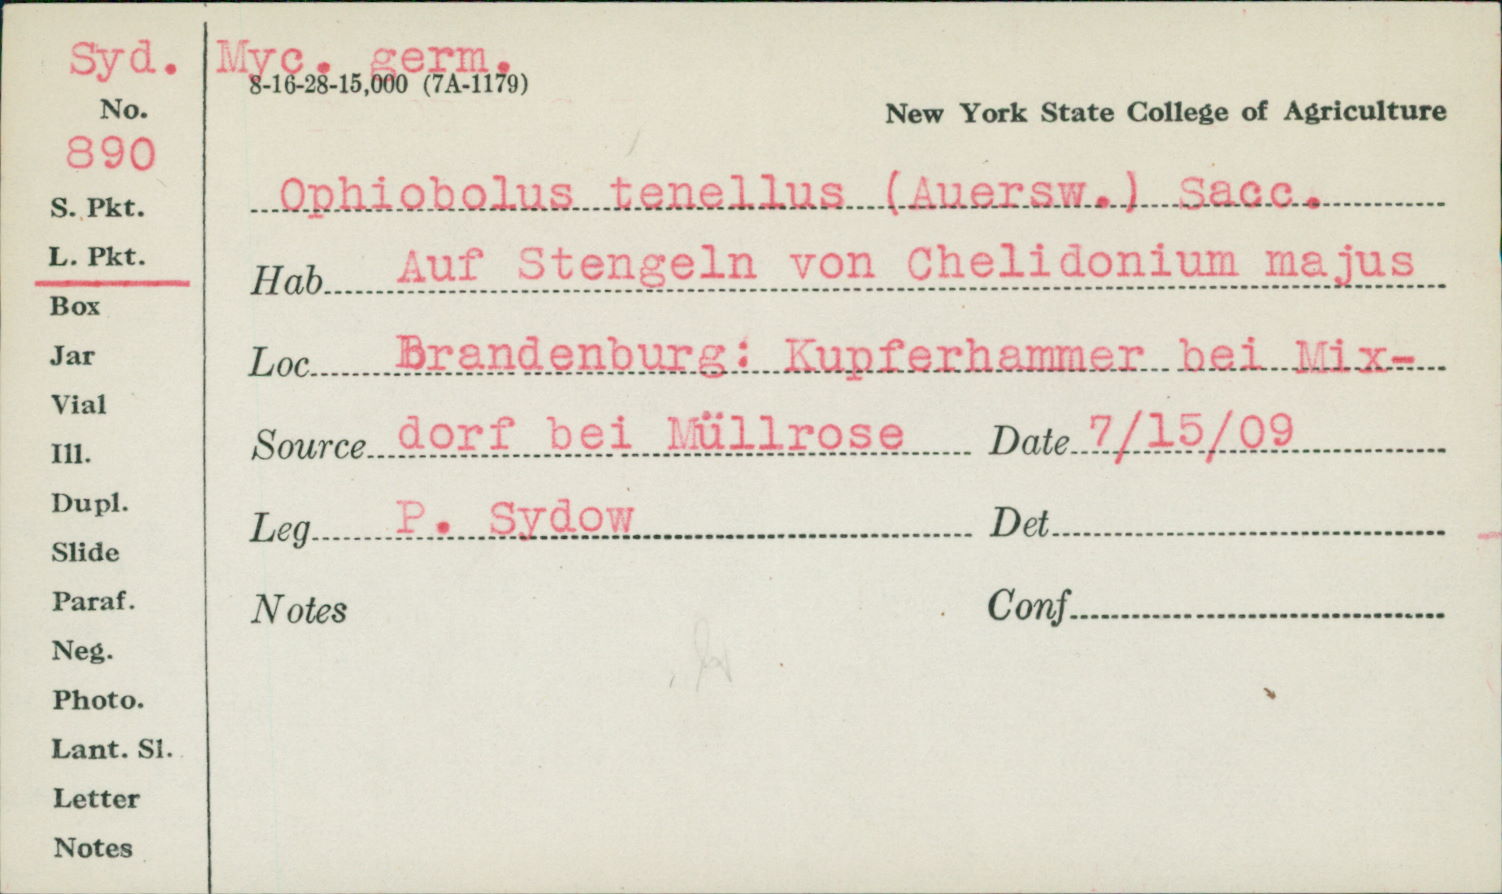 Syd. Myc. germ.
8-16-28-15,000 (7A-1179)
No.
New York State College of Agriculture
890
Ophiobolus tenellus (Auersw.) Sacc.
S. Pkt.
L. Pkt.
Hab Auf Stengeln von Chelidonium majus
Box
Jar
Loc Brandenburg: Kupferhammer bei Mix-
Vial
Source dorf bei Müllrose Date 7/15/09
Ill.
Dupl.
Leg P. Sydow Det
Slide
Paraf.
Notes Conf
Neg.
Photo.
Lant. Sl.
Letter
Notes